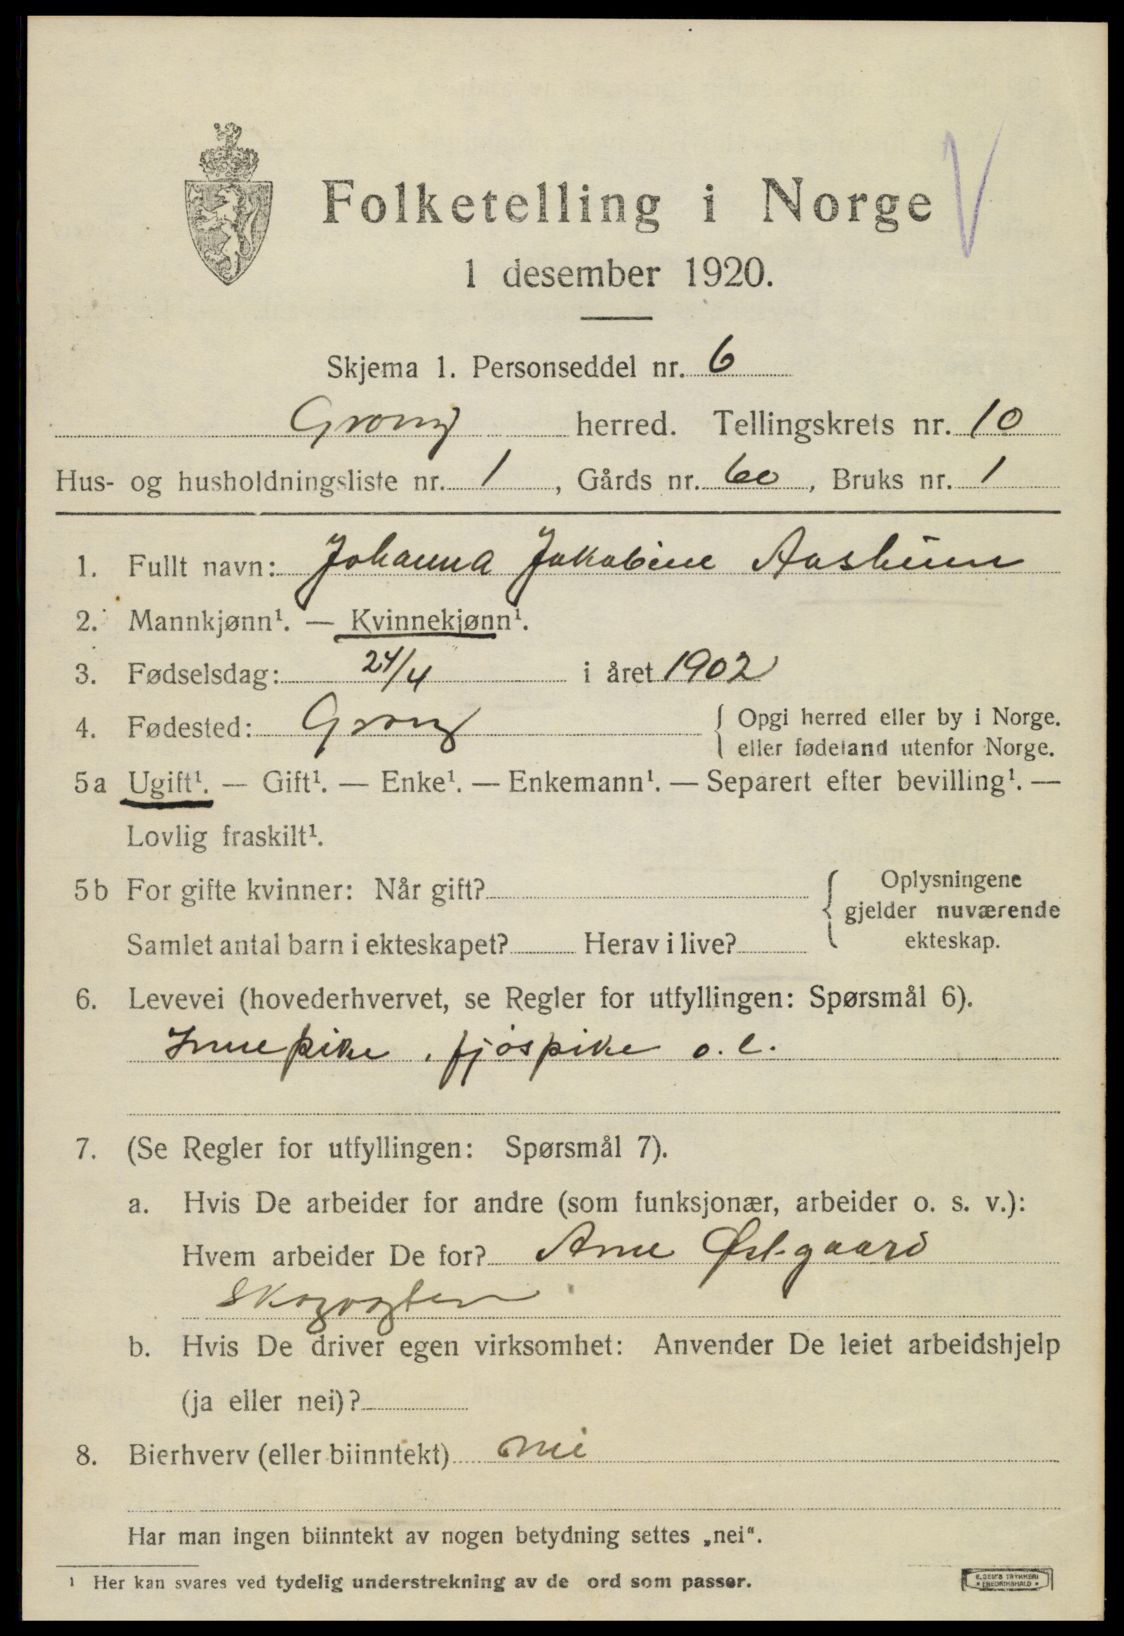 Folketelling i Norge
1 desember 1920.
Skjema 1. Personseddel nr. 6
Grong herred. Tellingskrets nr. 10
Hus- og husholdningsliste nr. 1, Gårds nr. 60, Bruks nr. 1
1. Fullt navn: Johanna Jakobine Aasheim
2. Mannkjønn¹. — Kvinnekjønn¹.
3. Fødselsdag: 24/4 i året 1902
4. Fødested: Grong { Opgi herred eller by i Norge.
eller fødeland utenfor Norge.
5a Ugift¹. — Gift¹. — Enke¹. — Enkemann¹. — Separert efter bevilling¹. —
Lovlig fraskilt¹.
5b For gifte kvinner: Når gift? { Oplysningene
gjelder nuværende
ekteskap.
Samlet antal barn i ekteskapet? Herav i live?
6. Levevei (hovederhvervet, se Regler for utfyllingen: Spørsmål 6).
Innepike, fjøspike o. l.
7. (Se Regler for utfyllingen: Spørsmål 7).
a. Hvis De arbeider for andre (som funksjonær, arbeider o. s. v.):
Hvem arbeider De for? Arne Østgaard
Skogvogter
b. Hvis De driver egen virksomhet: Anvender De leiet arbeidshjelp
(ja eller nei)?
8. Bierhverv (eller biinntekt) nei
Har man ingen biinntekt av nogen betydning settes „nei“.
¹ Her kan svares ved tydelig understrekning av de ord som passer.
E. SEM'S TRYKKERI
FREDRIKSHALD